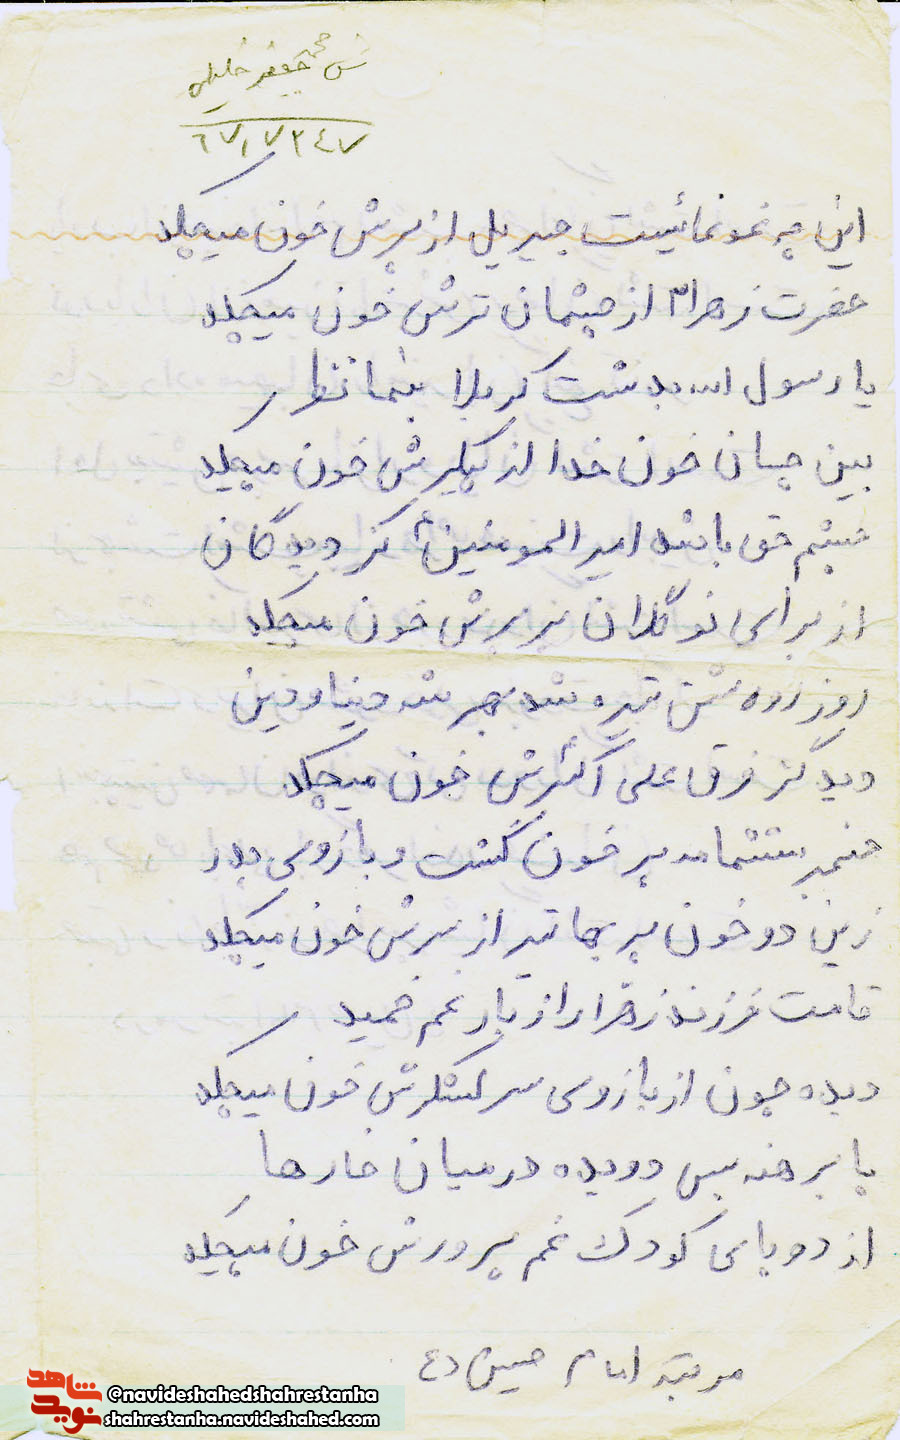 ش محمد جعفر خلیلی
٦٧١٧٣٤٧
این چه غمونمائیست جبریل از پرش خون میچکد
حضرت زهرا۳ از چشمان ترش خون میچکد
یا رسول اله بدشت کربلا بنما نظر
ببین چسان خون خدا از پیکرش خون میچکد
چشم حق باشید امیر المومنین کز دیدگان
از برای نو گلان پرپرش خون میچکد
روز روشن تیره شد بهر شه دنیا و دین
دید کز فرق علی اکبرش خون میچکد
پر خون گشت و بازوی پدر
زین دو خون پر بها تیر از پرش خون میچکد
قامت فرزند زهرا از بار غم خمید
دیده چون از بازوی سر لشکرش خون میچکد
پا برهنه بس دویده در میان خارها
از دو پای کودک غم پرورش خون میچکد
مرثیه امام حسین (ع
شاهد
نوید
@navideshahedshahrestanha
shahrestanha.navideshahed.com